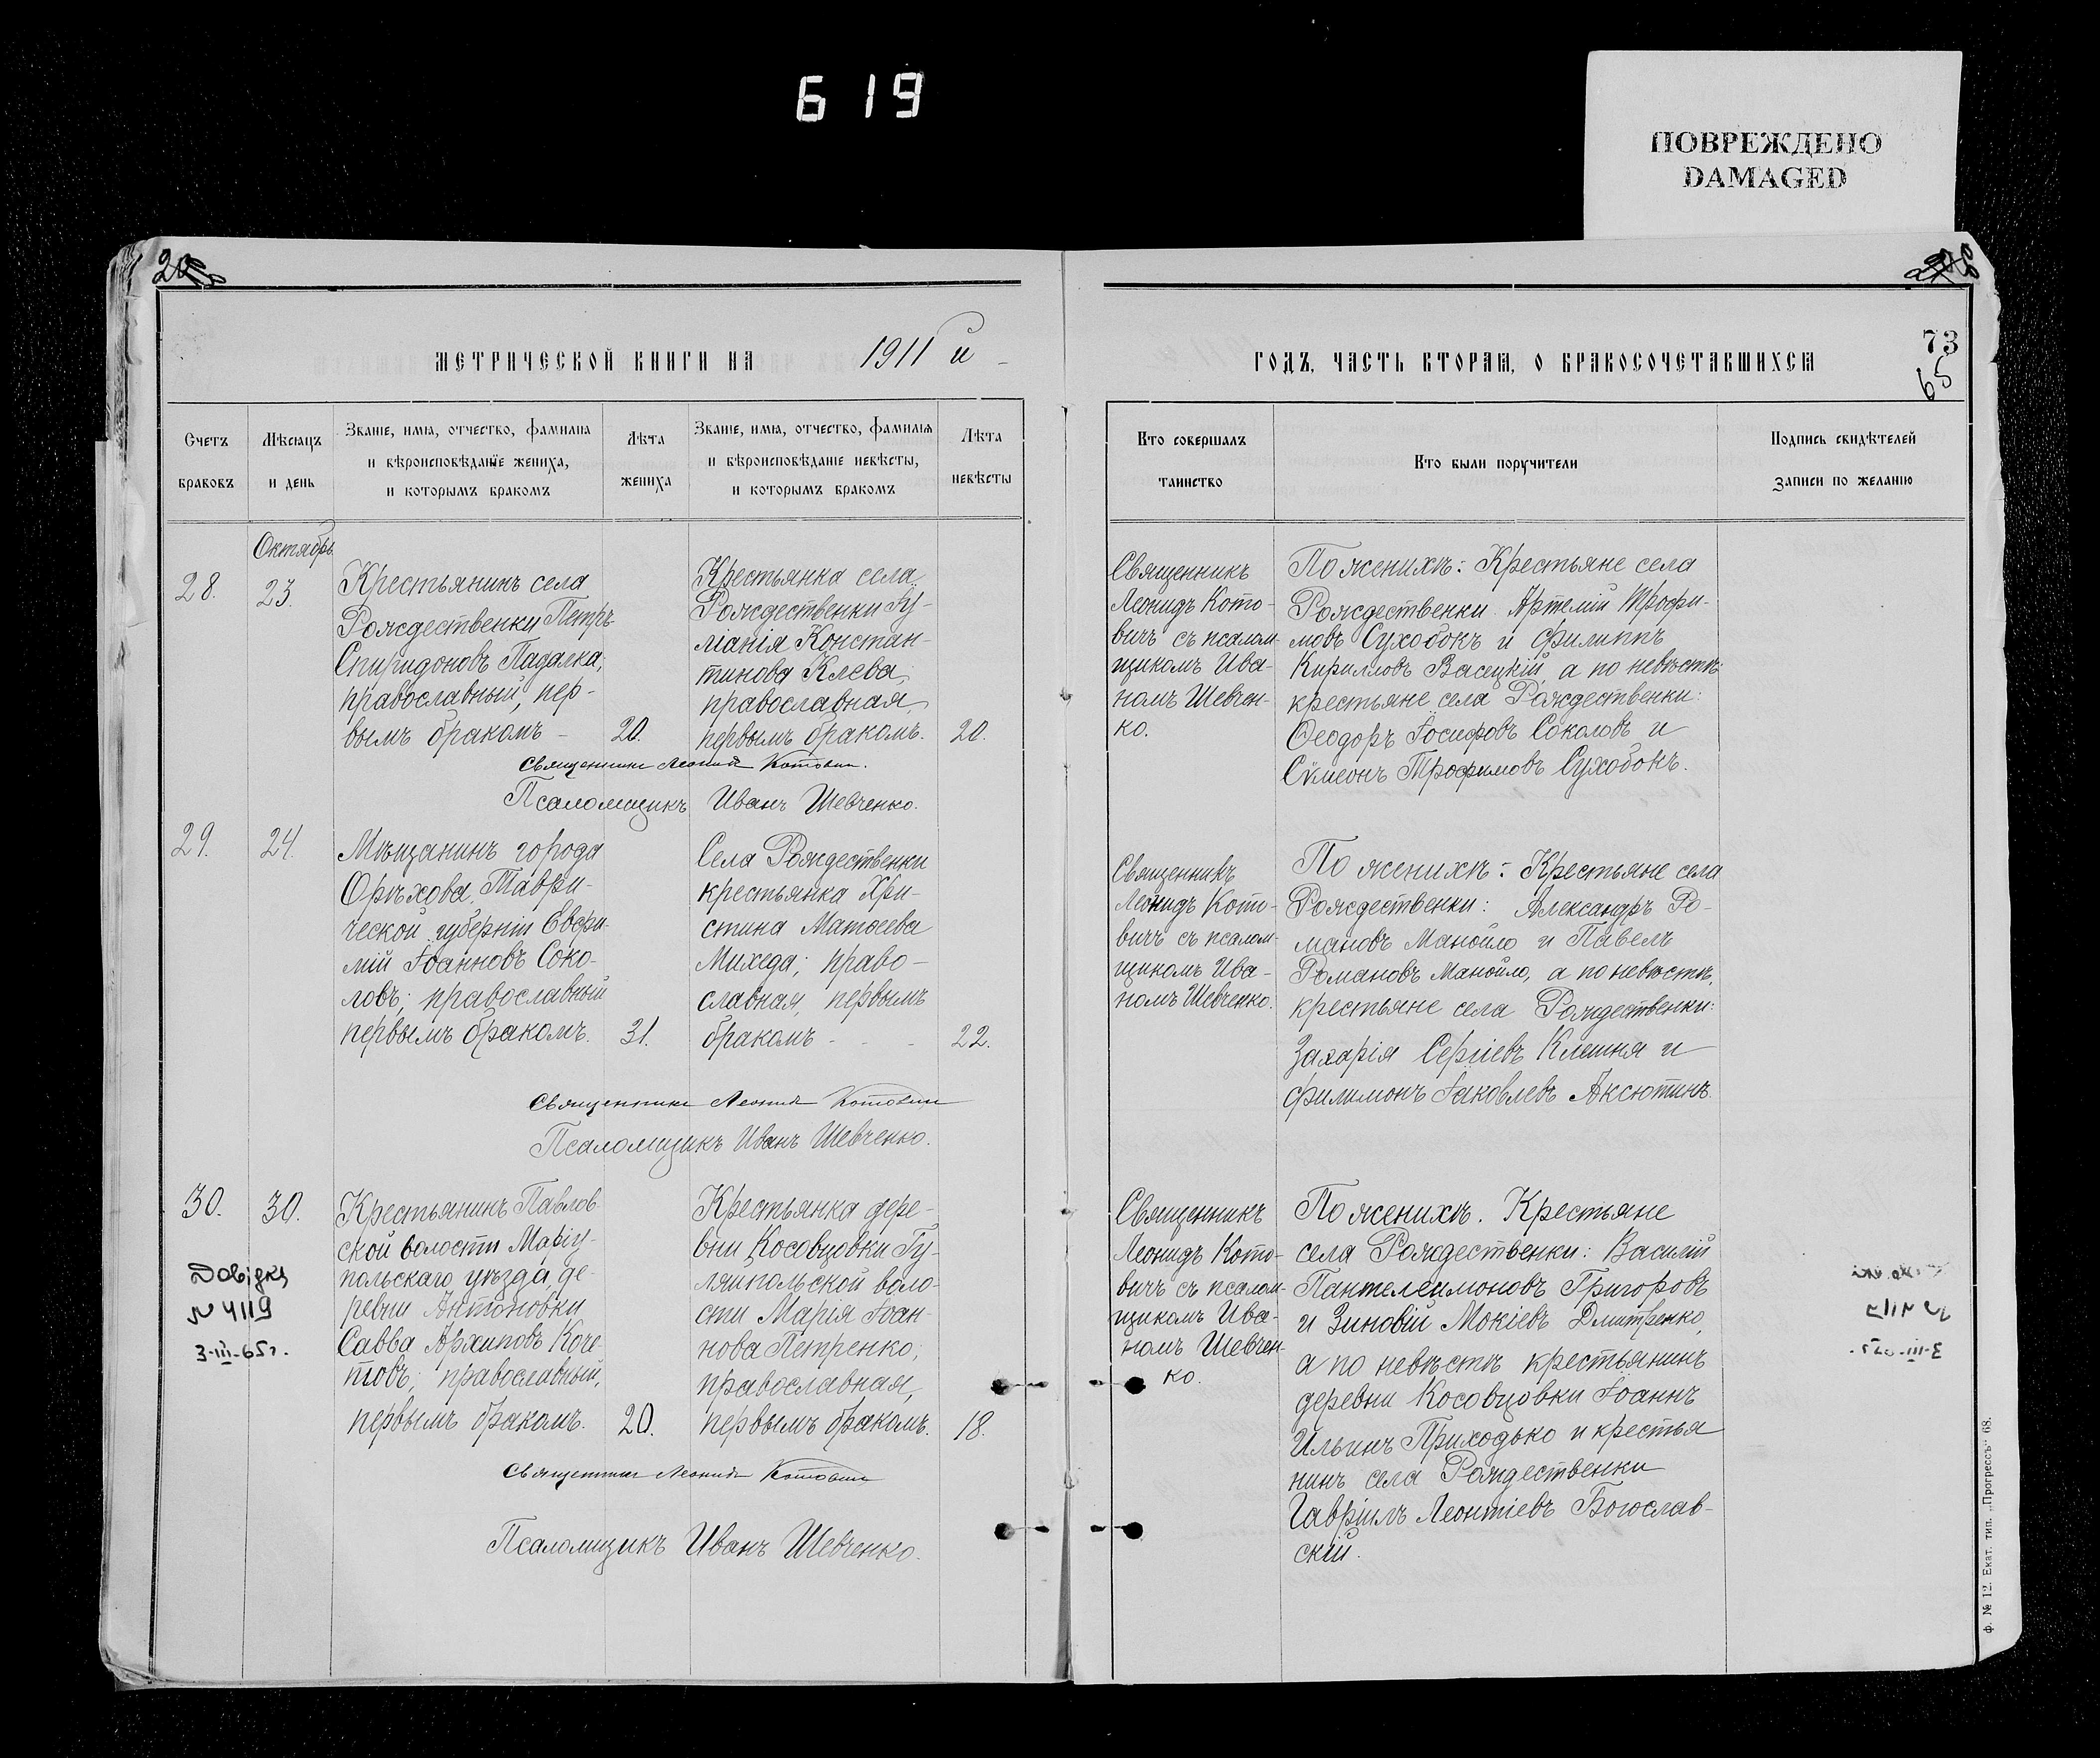 619
ПОВРЕЖДЕНО
DAMAGED
МЕТРИЧЕСКОЙ КНИГИ НА 1911 й
ГОДЪ, ЧАСТЬ ВТОРАЯ, О БРАКОСОЧЕТАВШИХСЯ
73
65
Счетъ браковъ
Мѣсяцъ и день
Званіе, имя, отчество, фамилія
и вѣроисповѣданіе жениха,
и которымъ бракомъ
Лѣта жениха
Званіе, имя, отчество, фамилія
и вѣроисповѣданіе невѣсты,
и которымъ бракомъ
Лѣта невѣсты
Кто совершалъ
таинство
Кто были поручители
Подпись свидѣтелей
записи по желанію
Октябрь
28.
23.
Крестьянинъ села
Рождественки Петръ
Спиридоновъ Падалка,
православный, пер-
вымъ бракомъ -
20.
Крестьянка села
Рождественки Іу-
ліанія Констан-
тинова Клева,
православная,
первымъ бракомъ.
20.
Священникъ
Леонидъ Кото-
вичъ съ псалом-
щикомъ Ива-
номъ Шевчен-
ко.
По женихѣ: Крестьяне села
Рождественки Артемій Трофи-
мовъ Сухобокъ и Филиппъ
Кирилловъ Васецкій, а по невѣстѣ:
крестьяне села Рождественки:
Ѳеодоръ Іосифовъ Соколовъ и
Сѵмеонъ Трофимовъ Сухобокъ.
Священникъ Леонидъ Котовичъ.
Псаломщикъ Иванъ Шевченко.
29.
24.
Мѣщанинъ города
Орѣхова, Таври-
ческой губерніи Евфи-
мій Іоанновъ Соко-
ловъ; православный
первымъ бракомъ.
31.
Села Рождественки
крестьянка Хри-
стина Матѳеева
Михеда; право-
славная, первымъ
бракомъ - - -
22.
Священникъ
Леонидъ Кото-
вичъ съ псалом-
щикомъ Ива-
номъ Шевченко.
По женихѣ: Крестьяне села
Рождественки: Александръ Ро-
мановъ Манойло и Павелъ
Романовъ Манойло, а по невѣстѣ,
крестьяне села Рождественки:
Захарія Сергіевъ Клешня и
Филимонъ Іаковлевъ Аксютинъ.
Священникъ Леонидъ Котовичъ
Псаломщикъ Иванъ Шевченко.
30.
30.
Довідка
N 4119
3-III-65г.
Крестьянинъ Павлов-
ской волости Маріу-
польскаго уѣзда, де-
ревни Антоновки
Савва Архиповъ Коче-
товъ; православный,
первымъ бракомъ.
20.
Крестьянка дере-
вни Косовцовки Гу-
ляйпольской воло-
сти Марія Іоан-
нова Петренко;
православная,
первымъ бракомъ.
18.
Священникъ
Леонидъ Кото-
вичъ съ псалом-
щикомъ Ива-
номъ Шевчен-
ко.
По женихѣ. Крестьяне
села Рождественки: Василій
Пантелеимоновъ Григоровъ
и Зиновій Мокіевъ Дмитренко,
а по невѣстѣ крестьянинъ
деревни Косовцовки Іоаннъ
Ильинъ Приходько и крестья
нинъ села Рождественки
Гавріилъ Леонтіевъ Богослав-
скій.
Священникъ Леонидъ Котовичъ
Псаломщикъ Иванъ Шевченко.
Ф. № 12. Екат. тип. „Прогрессъ" 68.